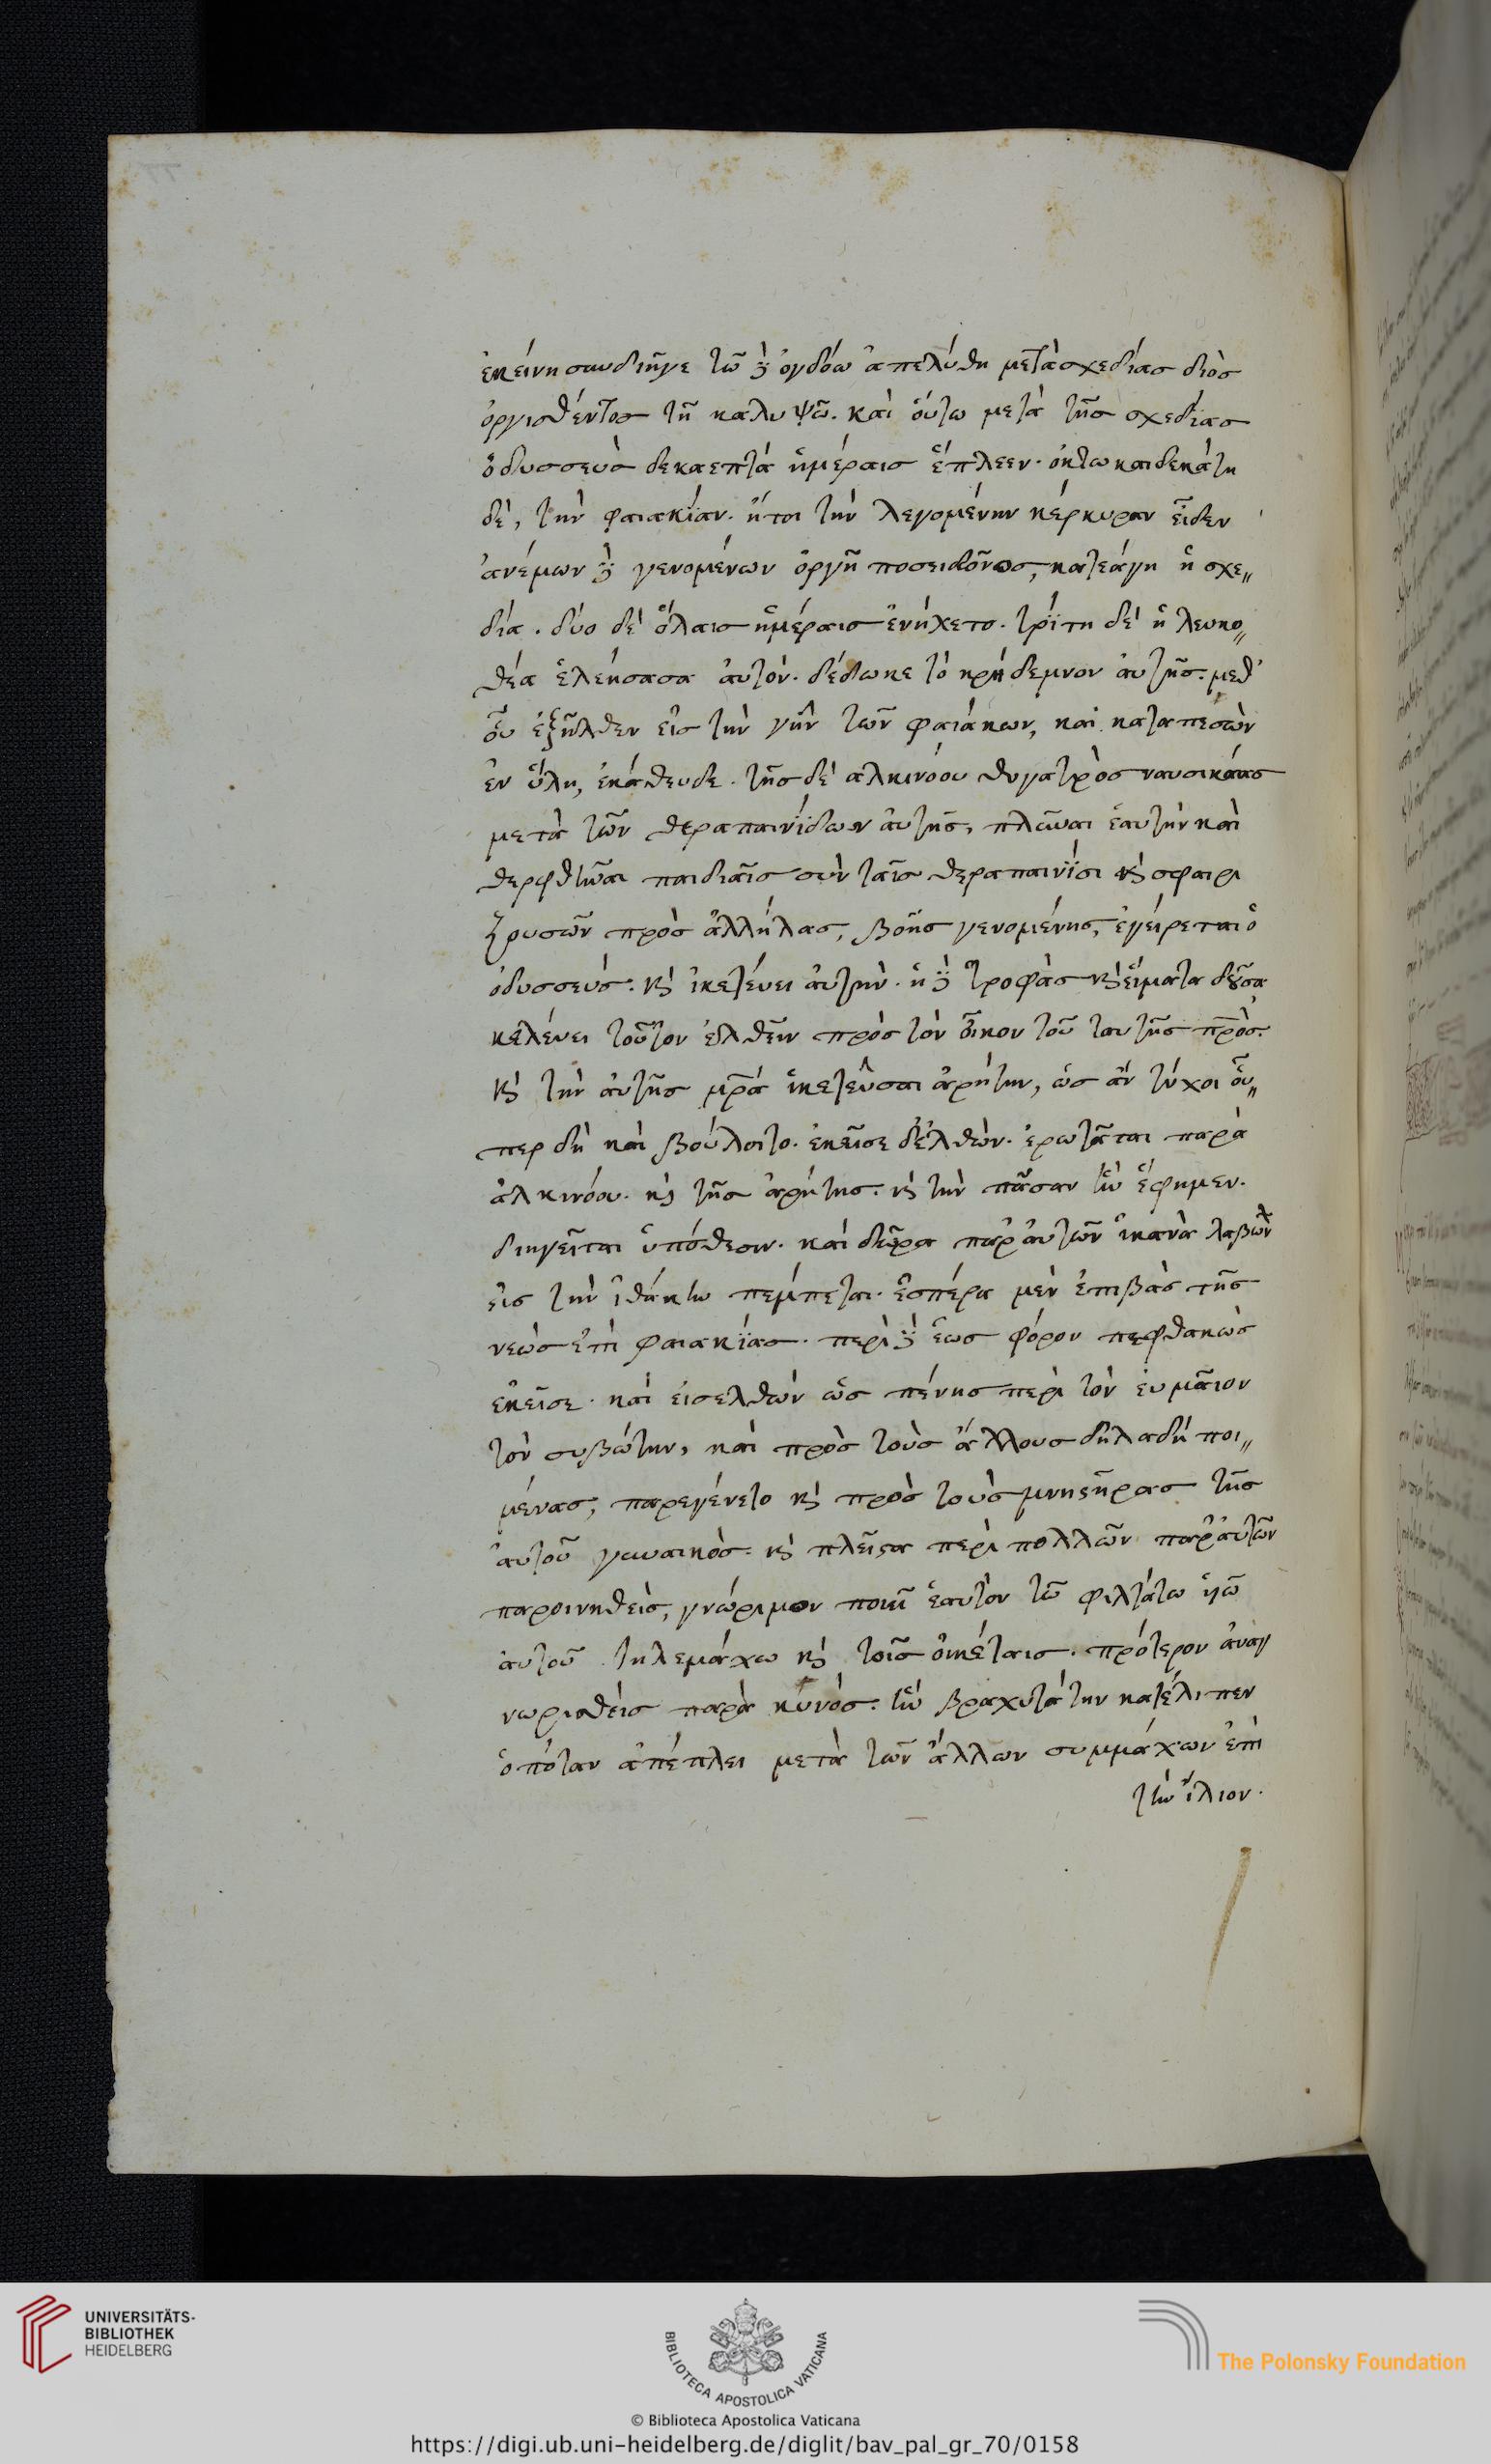 ἐκείνη συνδιῆγε τῶ δὲ ὀγδόω ἀπελύθη μετὰ σχεδίας διὸς
ὀργισθέντος τῇ καλυψῶ. καὶ οὕτω μετὰ τῆς σχεδίας
ὀδυσσεὺς δεκαεπτά ἡμέραις ἔπλεεν. ὀκτωκαιδεκάτη
δὲ, τὴν φαιακίαν. ἤτοι τὴν λεγομένην κέρκυραν εἶδεν
ἀνέμων δὲ γενομένων ὀργῆ ποσειδῶνος, κατεάγη ἡ σχε〃
δία. δύο δὲ ὅλαις ἡμέραις ἐνήχετο. τρίτη δὲ ἡ λευκο〃
θέα ἐλεήσασα αὐτόν. δέδωκε τὸ κρήδεμνον αὐτῆς. μεθ᾽
οὗ ἐξῆλθεν εἰς τὴν γῆν τῶν φαιάκων, καὶ καταπεσὼν
ἐν ὕλη, ἐκάθευδε. τῆς δὲ αλκινόου θυγατρὸς ναυσικάας
μετὰ τῶν θεραπαινίδων αὐτῆς, πλῦναι ἑαυτὴν καὶ
τερφθῆναι παιδιαῖς σὺν ταῖς θεραπαινίσι καὶ σφαιρι
ζουσῶν πρὸς ἀλλήλας, βοῆς γενομένης, ἐγείρεται ὁ
ὀδυσσεύς. καὶ ἱκετεύει αὐτὴν. ἡ δὲ τροφὰς καὶ εἵματα δοῦσα
κελεύει τοῦτον ἐλθεῖν πρὸς τὸν οἶκον τοῦ ταυτῆς πρὸς.
καὶ τὴν αὐτῆς μρὰ ἱκετεῦσαι ἀρήτην, ὡς ἂν τύχοι οὗ〃
περ δὴ καὶ βούλοιτο. ἐκεῖσε δ᾽ ἐλθὼν. ἐρωτᾶται παρὰ
ἀλκινόου. καὶ τῆς ἀρήτης. καὶ τὴν πᾶσαν ἣν ἔφημεν.
διηγεῖται ὑπόθεσιν. καὶ δῶρα παρ᾽ αὐτῶν ἱκανὰ λαβὼν
εἰς τὴν ἰθάκην πέμπεται. ἑσπέρα μὲν ἐπιβὰς τῆς
νεὼς ἐπὶ φαιακίας. περὶ δὲ ἕως φόρον πεφθακὼς
ἐκεῖσε. καὶ εἰσελθὼν ὡς πένης περὶ τὸν εὐμαῖον
τὸν συβώτην, καὶ πρὸς τοὺς ἄλλους δηλαδὴ ποι〃
μένας, παρεγένετο καὶ πρὸς τοὺς μνηστῆρας τῆς
αὐτοῦ γυναικὸς. καὶ πλεῖστα περὶ πολλῶν παρ᾽ αὐτῶν
παροινηθεὶς, γνώριμον ποιεῖ ἑαυτὸν τῶ φιλτάτω ὑιῶ
αὐτοῦ τηλεμάχω καὶ τοῖς οἰκέταις. πρότερον ἀναγ
νωρισθεὶς παρὰ κυνός. ἣν βραχυτάτην κατέλιπεν
ὁπόταν ἀπέπλει μετὰ τῶν ἄλλων συμμάχων ἐπὶ
τὴν ἴλιον.
UNIVERSITÄTS-
BIBLIOTHEK
HEIDELBERG
BIBLIOTECA APOSTOLICA VATICANA
The Polonsky Foundation
© Biblioteca Apostolica Vaticana
https://digi.ub.uni-heidelberg.de/diglit/bav_pal_gr_70/0158